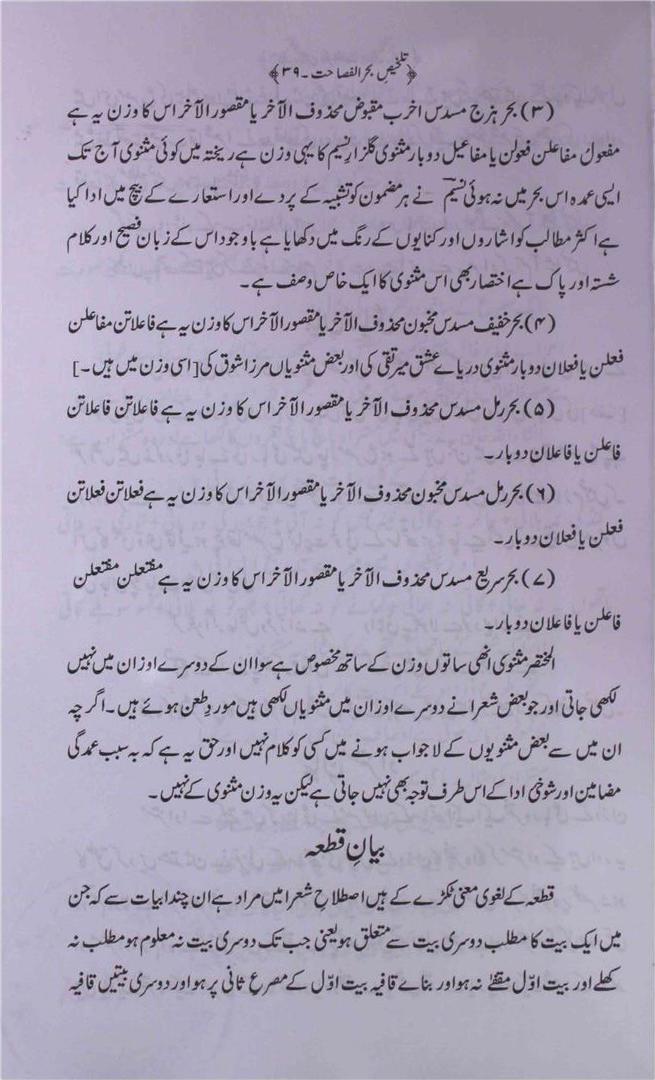 ﴿تلخیصِ بحر الفصاحت۔۳۹﴾
(۳) بحر ہزج مسدس اخرب مقبوض محذوف الآخر یا مقصور الآخر اس کا وزن یہ ہے
مفعولُ مفاعلن فعولن یا مفاعیل دو بار مثنوی گلزارِ نسیم کا یہی وزن ہے ریختہ میں کوئی مثنوی آج تک
ایسی عمدہ اس بحر میں نہ ہوئی نسیمؔ نے ہر مضمون کو تشبیہ کے پردے اور استعارے کے پیچ میں ادا کیا
ہے اکثر مطالب کو اشاروں اور کنایوں کے رنگ میں دکھایا ہے باوجود اس کے زبان فصیح اور کلام
شستہ اور پاک ہے اختصار بھی اس مثنوی کا ایک خاص وصف ہے۔
(۴) بحر خفیف مسدس مخبون محذوف الآخر یا مقصور الآخر اس کا وزن یہ ہے فاعلاتن مفاعلن
فعلن یا فعلان دو بار مثنوی دریاے عشق میر تقی کی اور بعض مثنویاں مرزا شوق کی [اسی وزن میں ہیں۔]
(۵) بحر رمل مسدس محذوف الآخر یا مقصور الآخر اس کا وزن یہ ہے فاعلاتن فاعلاتن
فاعلن یا فاعلان دو بار۔
(۶) بحر رمل مسدس مخبون محذوف الآخر یا مقصور الآخر اس کا وزن یہ ہے فعلاتن فعلاتن
فعلن یا فعلان دو بار۔
(۷) بحر سریع مسدس محذوف الآخر یا مقصور الآخر اس کا وزن یہ ہے مفتعلن مفتعلن
فاعلن یا فاعلان دو بار۔
المختصر مثنوی انھی ساتوں وزن کے ساتھ مخصوص ہے سوا ان کے دوسرے اوزان میں نہیں
لکھی جاتی اور جو بعض شعرا نے دوسرے اوزان میں مثنویاں لکھی ہیں موردِ طعن ہوئے ہیں۔ اگرچہ
ان میں سے بعض مثنویوں کے لاجواب ہونے میں کسی کو کلام نہیں اور حق یہ ہے کہ بہ سبب عمدگی
مضامین اور شوخیِ ادا کے اس طرف توجہ بھی نہیں جاتی ہے لیکن یہ وزن مثنوی کے نہیں۔
بیانِ قطعہ
قطعہ کے لغوی معنی ٹکڑے کے ہیں اصطلاحِ شعرا میں مراد ہے ان چند ابیات سے کہ جن
میں ایک بیت کا مطلب دوسری بیت سے متعلق ہو یعنی جب تک دوسری بیت نہ معلوم ہو مطلب نہ
کھلے اور بیت اوّل مقفّےٰ نہ ہو اور بناے قافیہ بیت اوّل کے مصرع ثانی پر ہو اور دوسری بیتیں قافیہ